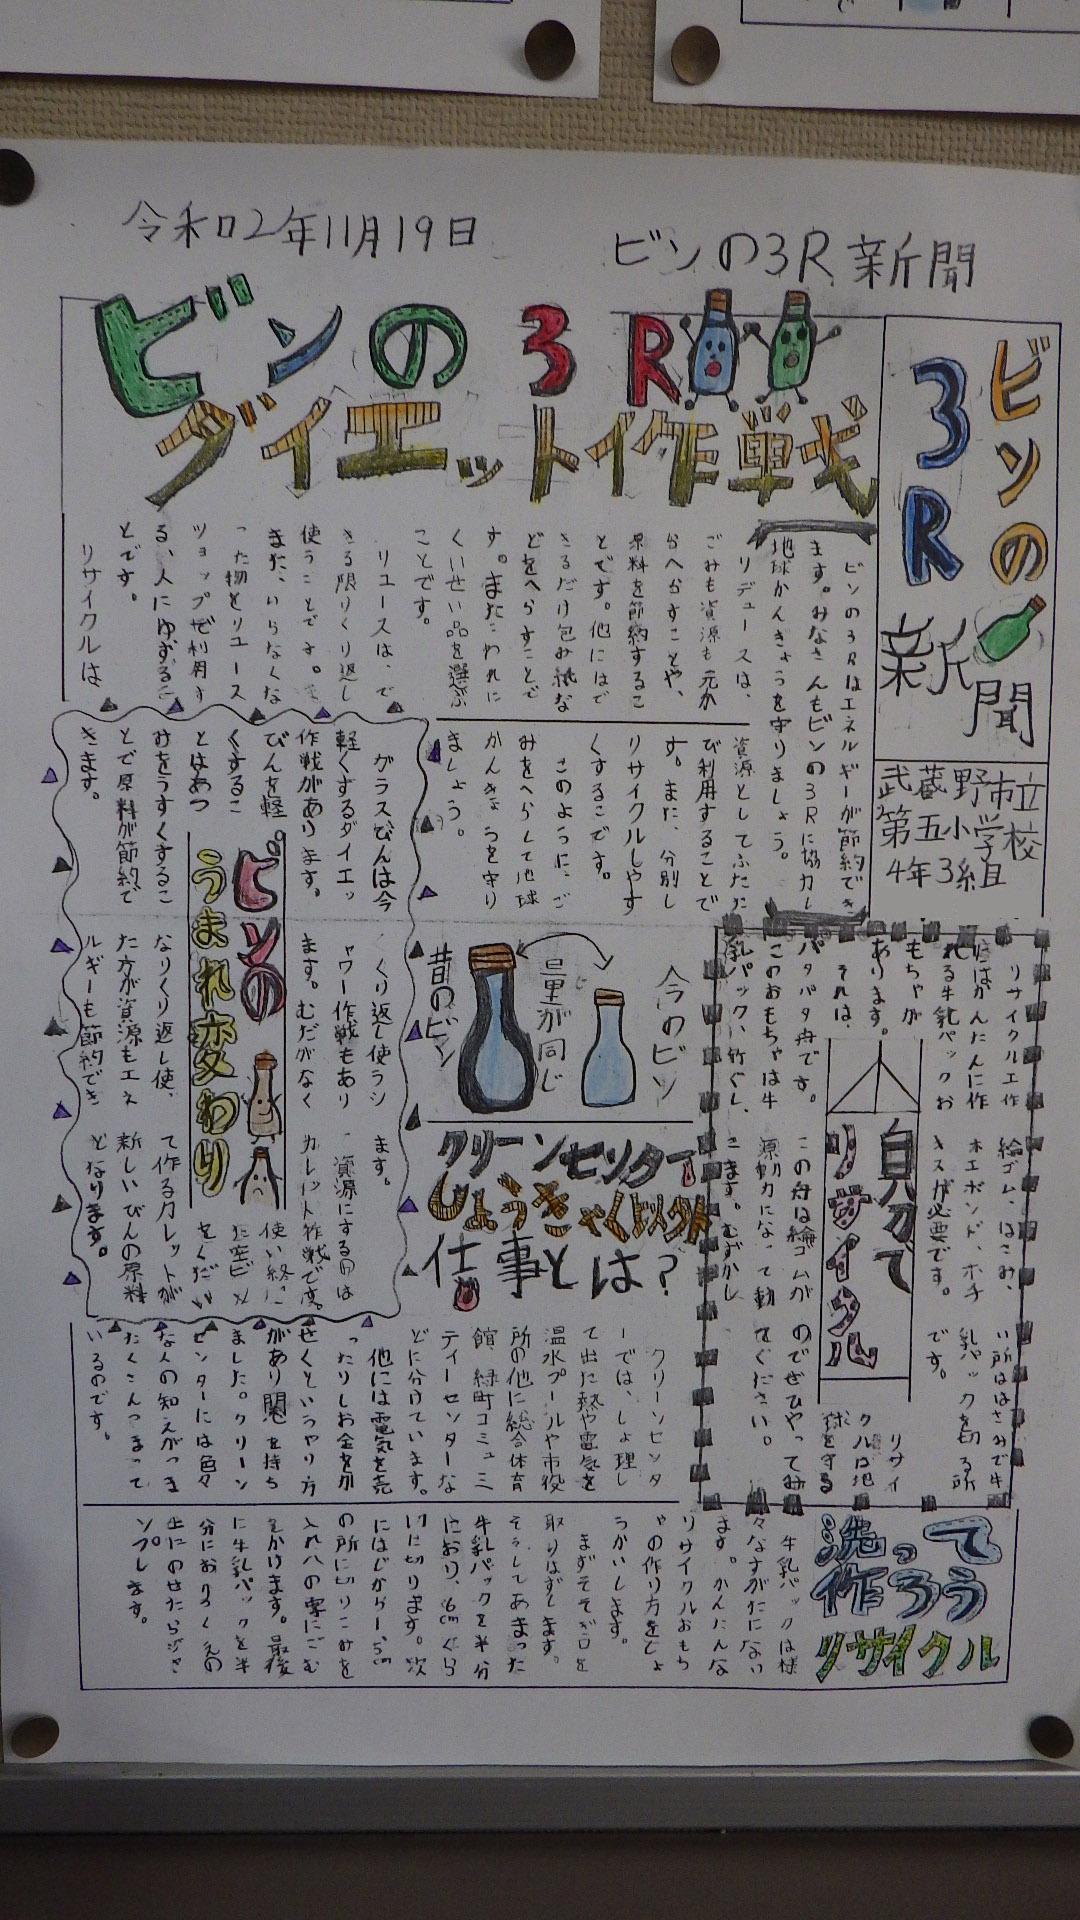 令和2年11月19日
ビンの3R新聞
ビンの
3R
新聞
武蔵野市立
第五小学校
4年3組
ビンの3R
ダイエット作戦
ビンの3Rはエネルギーが節約でき
ます。みなさんもビンの3Rに協力し
地球かんきょうを守りましょう。
リデュースは、
ごみも資源も元か
らへらすことや、
原料を節約するこ
とです。他にはで
きるだけ包み紙な
どをへらすことで
す。またこわれに
くいせい品を選ぶ
ことです。
リユースは、で
きる限りくり返し
使うことです。
また、いらなくな
った物をリユース
ショップで利用す
る、人にゆずるこ
とです。
リサイクルは
資源としてふたた
び利用することで
す。また、分別し
リサイクルしやす
くすることです。
このように、ご
みをへらして地球
かんきょうを守り
ましょう。
ビンの
うまれ変わり
ガラスびんは今
軽くするダイエッ
作戦があります。
びんを軽
くするこ
とはあつ
みをうすくするこ
とで原料が節約で
きます。
くり返し使うシ
ャワー作戦もあり
ます。むだがなく
なりくり返し使
た方が資源もエネ
ルギーも節約でき
ます。
資源にするのは
カレット作戦です。
使い終わっ
た空ビン
をくだい
て作るカレットが
新しいびんの原料
となります。
今のビン
量が同じ
昔のビン
クリーンセンター
しょうきゃく以外
仕事とは?
クリーンセンタ
ーでは、しょ理し
て出た熱や電気を
温水プールや市役
所の他に総合体育
館、緑町コミュニ
ティーセンターな
どに分けています。
他には電気を売
ったりしお金をか
せぐというやり方
があり関心を持ち
ました。クリーン
センターには色々
な人の知えがつま
たくさんつまって
いるのです。
自分で
リサイクル
リサイクル工作
にはかんたんに作
れる牛乳パックお
もちゃが
あります。
それは、
パタパタ舟です。
このおもちゃは牛
乳パック、竹ぐし、
絵ゴム、はさみ、
木工ボンド、ホチ
キスが必要です。
この舟は輪ゴムが
源動力になって動
きます。むずかし
い所ははさみで牛
乳パックを切る所
です。
リサイ
クルは地
球を守る
のでぜひやってみ
てください。
洗って
作ろう
リサイクル
牛乳パックは様
々なすがたになり
ます。かんたんな
リサイクルおもち
ゃの作り方をしょ
うかいします。
まずそそぎ口を
取りはずします。
そうしてあまった
牛乳パックを半分
におり、6cmぐら
いに切ります。次
にはじから1.5cm
の所に切りこみを
入れ八の字にごむ
をかけます。最後
に牛乳パックを半
分におりつくえの
上にのせたらジャ
ンプします。